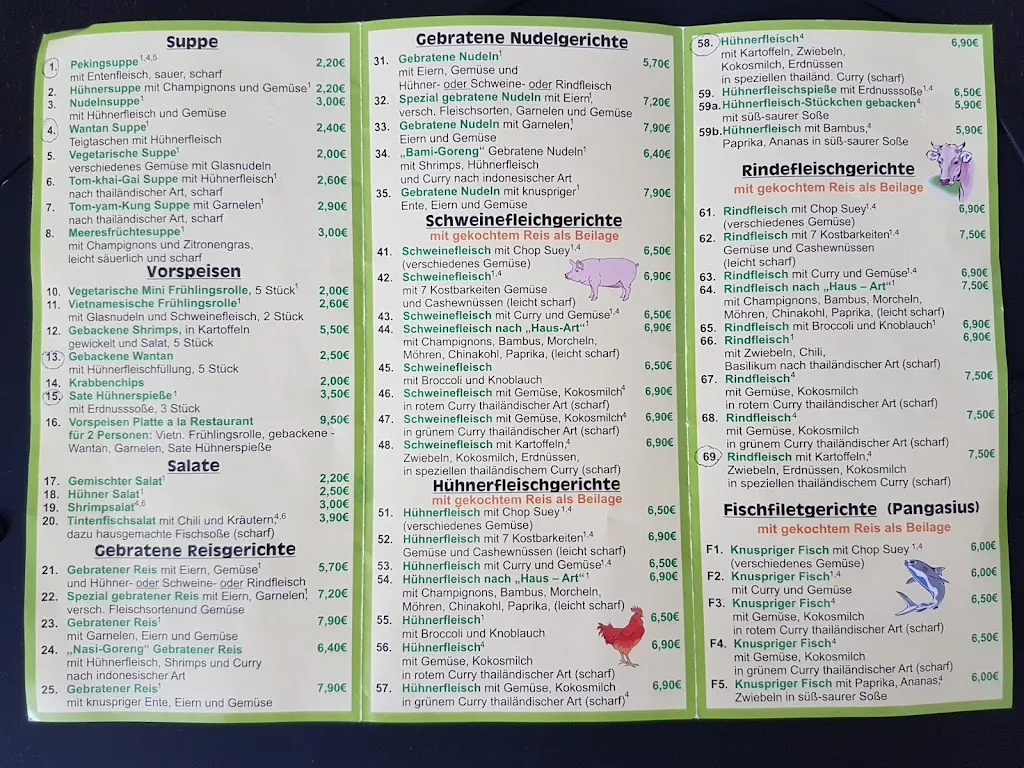 Suppe
1. Pekingsuppe1,4,5 2,20€
mit Entenfleisch, sauer, scharf
2. Hühnersuppe mit Champignons und Gemüse1 2,20€
3. Nudelsuppe1 3,00€
mit Hühnerfleisch und Gemüse
4. Wantan Suppe1 2,40€
Teigtaschen mit Hühnerfleisch
5. Vegetarische Suppe1 2,00€
verschiedenes Gemüse mit Glasnudeln
6. Tom-khai-Gai Suppe mit Hühnerfleisch1 2,60€
nach thailändischer Art, scharf
7. Tom-yam-Kung Suppe mit Garnelen1 2,90€
nach thailändischer Art, scharf
8. Meeresfrüchtesuppe1 3,00€
mit Champignons und Zitronengras,
leicht säuerlich und scharf
Vorspeisen
10. Vegetarische Mini Frühlingsrolle, 5 Stück1 2,00€
11. Vietnamesische Frühlingsrolle1 2,60€
mit Glasnudeln und Schweinefleisch, 2 Stück
12. Gebackene Shrimps, in Kartoffeln 5,50€
gewickelt und Salat, 5 Stück
13. Gebackene Wantan 2,50€
mit Hühnerfleischfüllung, 5 Stück
14. Krabbenchips 2,00€
15. Sate Hühnerspieße1 3,50€
mit Erdnusssoße, 3 Stück
16. Vorspeisen Platte a la Restaurant 9,50€
für 2 Personen: Vietn. Frühlingsrolle, gebackene -
Wantan, Garnelen, Sate Hühnerspieße
Salate
17. Gemischter Salat1 2,20€
18. Hühner Salat1 2,50€
19. Shrimpsalat4,6 3,00€
20. Tintenfischsalat mit Chili und Kräutern,4,6 3,90€
dazu hausgemachte Fischsoße (scharf)
Gebratene Reisgerichte
21. Gebratener Reis mit Eiern, Gemüse1 5,70€
und Hühner- oder Schweine- oder Rindfleisch
22. Spezial gebratener Reis mit Eiern, Garnelen,1 7,20€
versch. Fleischsortenund Gemüse
23. Gebratener Reis1 7,90€
mit Garnelen, Eiern und Gemüse
24. „Nasi-Goreng“ Gebratener Reis 6,40€
mit Hühnerfleisch, Shrimps und Curry
nach indonesischer Art
25. Gebratener Reis1 7,90€
mit knuspriger Ente, Eiern und Gemüse
Gebratene Nudelgerichte
31. Gebratene Nudeln1 5,70€
mit Eiern, Gemüse und
Hühner- oder Schweine- oder Rindfleisch
32. Spezial gebratene Nudeln mit Eiern,1 7,20€
versch. Fleischsorten, Garnelen und Gemüse
33. Gebratene Nudeln mit Garnelen,1 7,90€
Eiern und Gemüse
34. „Bami-Goreng“ Gebratene Nudeln1 6,40€
mit Shrimps, Hühnerfleisch
und Curry nach indonesischer Art
35. Gebratene Nudeln mit knuspriger1 7,90€
Ente, Eiern und Gemüse
Schweinefleichgerichte
mit gekochtem Reis als Beilage
41. Schweinefleisch mit Chop Suey1,4 6,50€
(verschiedenes Gemüse)
42. Schweinefleisch1,4 6,90€
mit 7 Kostbarkeiten Gemüse
und Cashewnüssen (leicht scharf)
43. Schweinefleisch mit Curry und Gemüse1,4 6,50€
44. Schweinefleisch nach „Haus-Art“1 6,90€
mit Champignons, Bambus, Morcheln,
Möhren, Chinakohl, Paprika, (leicht scharf)
45. Schweinefleisch 6,50€
mit Broccoli und Knoblauch
46. Schweinefleisch mit Gemüse, Kokosmilch4 6,90€
in rotem Curry thailändischer Art (scharf)
47. Schweinefleisch mit Gemüse, Kokosmilch4 6,90€
in grünem Curry thailändischer Art (scharf)
48. Schweinefleisch mit Kartoffeln,4 6,90€
Zwiebeln, Kokosmilch, Erdnüssen,
in speziellen thailändischem Curry (scharf)
Hühnerfleischgerichte
mit gekochtem Reis als Beilage
51. Hühnerfleisch mit Chop Suey1,4 6,50€
(verschiedenes Gemüse)
52. Hühnerfleisch mit 7 Kostbarkeiten1,4 6,90€
Gemüse und Cashewnüssen (leicht scharf)
53. Hühnerfleisch mit Curry und Gemüse1,4 6,50€
54. Hühnerfleisch nach „Haus – Art“1 6,90€
mit Champignons, Bambus, Morcheln,
Möhren, Chinakohl, Paprika, (leicht scharf)
55. Hühnerfleisch1 6,50€
mit Broccoli und Knoblauch
56. Hühnerfleisch4 6,90€
mit Gemüse, Kokosmilch
in rotem Curry thailändischer Art (scharf)
57. Hühnerfleisch mit Gemüse, Kokosmilch 6,90€
in grünem Curry thailändischer Art (scharf)4
58. Hühnerfleisch4 6,90€
mit Kartoffeln, Zwiebeln,
Kokosmilch, Erdnüssen
in speziellen thailänd. Curry (scharf)
59. Hühnerfleischspieße mit Erdnusssoße1,4 6,50€
59a. Hühnerfleisch-Stückchen gebacken4 5,90€
mit süß-saurer Soße
59b. Hühnerfleisch mit Bambus,4 5,90€
Paprika, Ananas in süß-saurer Soße
Rindefleischgerichte
mit gekochtem Reis als Beilage
61. Rindfleisch mit Chop Suey1,4 6,90€
(verschiedenes Gemüse)
62. Rindfleisch mit 7 Kostbarkeiten1,4 7,50€
Gemüse und Cashewnüssen
(leicht scharf)
63. Rindfleisch mit Curry und Gemüse1,4 6,90€
64. Rindfleisch nach „Haus – Art“1 7,50€
mit Champignons, Bambus, Morcheln,
Möhren, Chinakohl, Paprika, (leicht scharf)
65. Rindfleisch mit Broccoli und Knoblauch1 6,90€
66. Rindfleisch1 6,90€
mit Zwiebeln, Chili,
Basilikum nach thailändischer Art (scharf)
67. Rindfleisch4 7,50€
mit Gemüse, Kokosmilch
in rotem Curry thailändischer Art (scharf)
68. Rindfleisch4 7,50€
mit Gemüse, Kokosmilch
in grünem Curry thailändischer Art (scharf)
69. Rindfleisch mit Kartoffeln,4 7,50€
Zwiebeln, Erdnüssen, Kokosmilch
in speziellen thailändischem Curry (scharf)
Fischfiletgerichte (Pangasius)
mit gekochtem Reis als Beilage
F1. Knuspriger Fisch mit Chop Suey1,4 6,00€
(verschiedenes Gemüse)
F2. Knuspriger Fisch1,4 6,00€
mit Curry und Gemüse
F3. Knuspriger Fisch4 6,50€
mit Gemüse, Kokosmilch
in rotem Curry thailändischer Art (scharf)
F4. Knuspriger Fisch4 6,50€
mit Gemüse, Kokosmilch
in grünem Curry thailändischer Art (scharf)
F5. Knuspriger Fisch mit Paprika, Ananas,4 6,00€
Zwiebeln in süß-saurer Soße